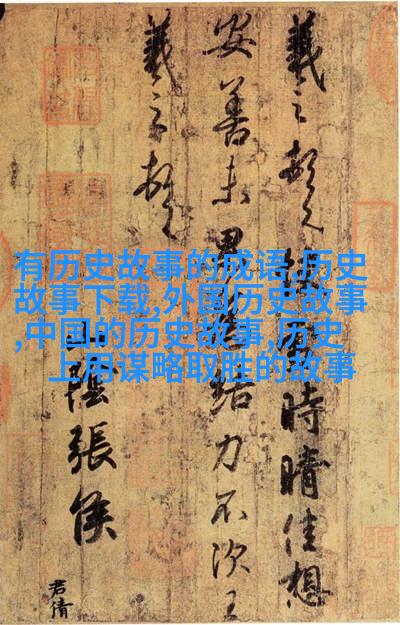 有历史故事的成语,历史
故事下载,外国历史故事
,中国的历史故事,历史
上用谋略取胜的故事
羲之頓首 時晴佳想
安善未果 結力不次王
羲之頓首
山陰張侯
君倩